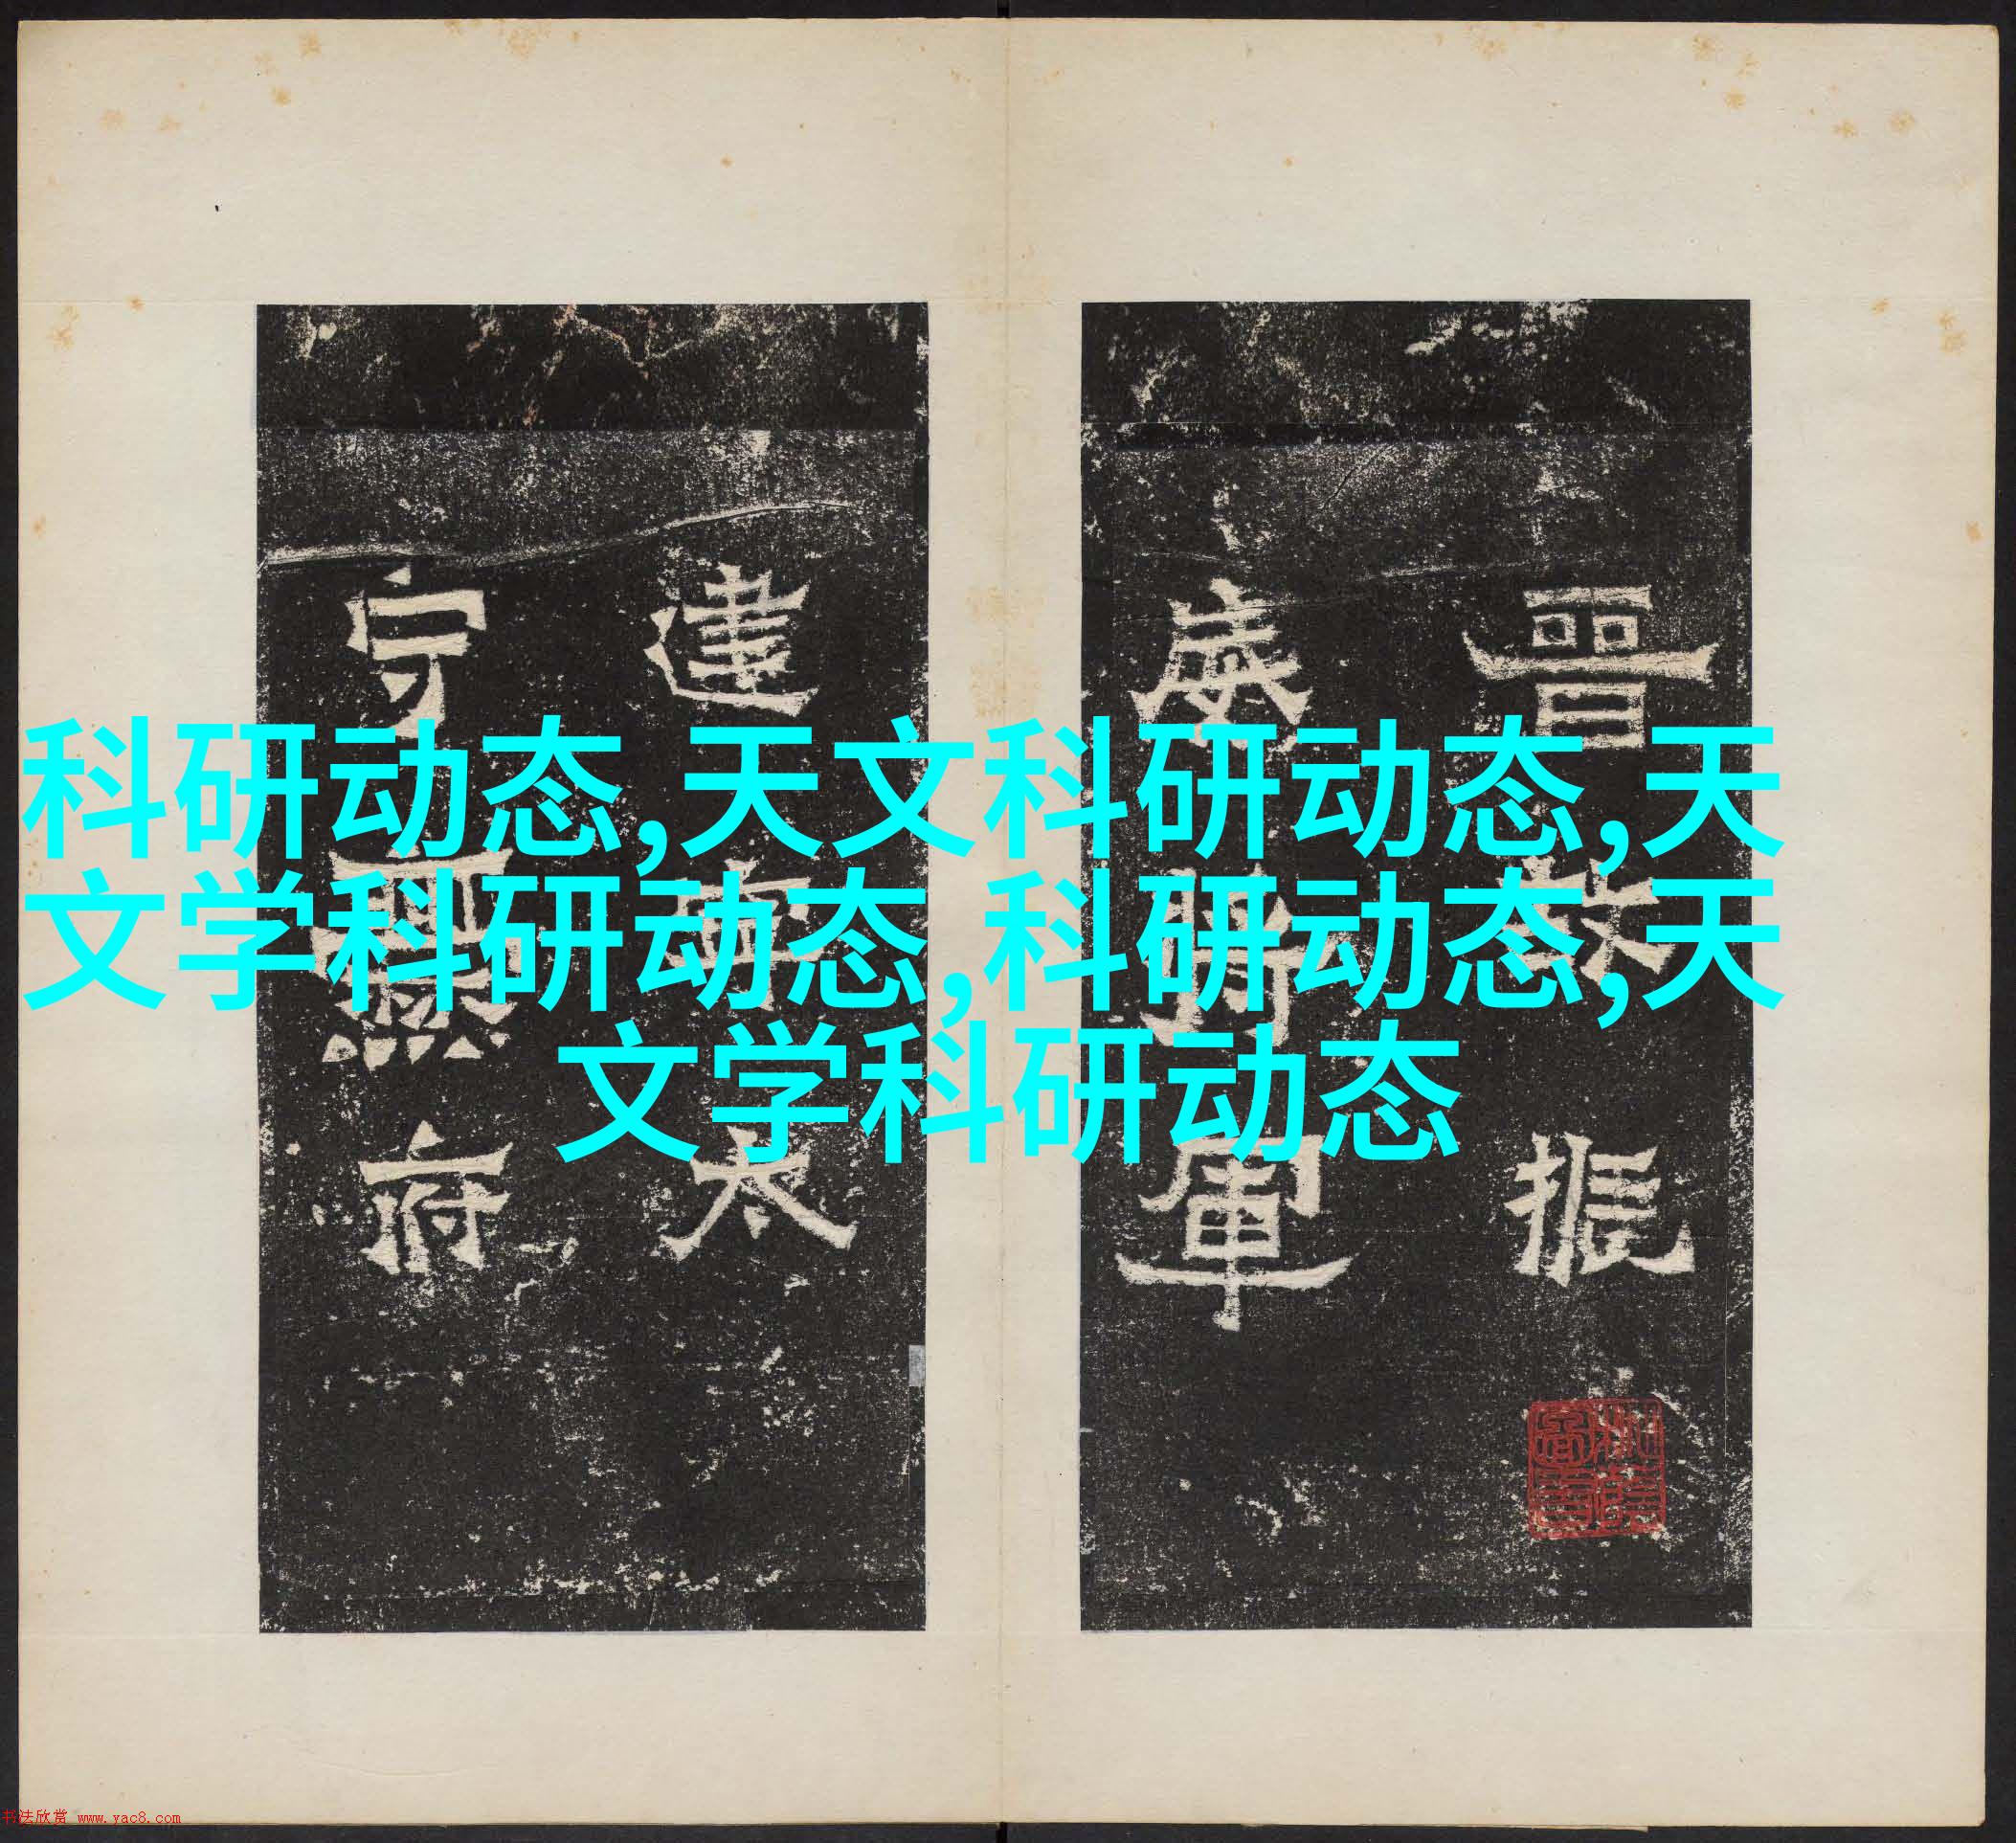 晉振
威將軍
建太
守府
科研动态,天文科研动态,天
文学科研动态,科研动态,天
文学科研动态
书法欣赏 www.yac8.com